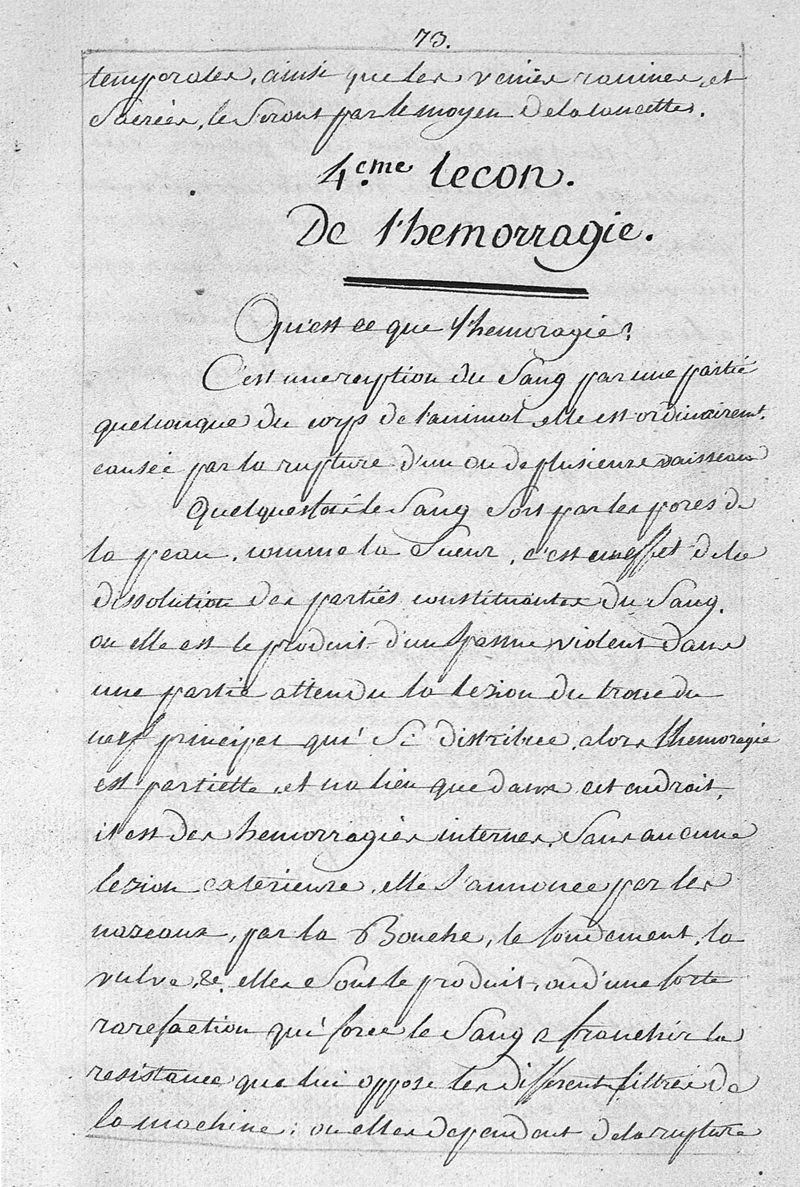 73.
temporales, ainsi que les veines ranines, et
Sacrées, le Seront par le moyen de la lancettes.
4.eme lecon.
De l'hemorragie.
Qu'est ce que l'hemoragie?
C'est une eruption du Sang par une partie
quelconque du corps de l'animal, elle est ordinairemt.
causée par la rupture d'un ou de plusieurs vaisseaux
Quelques fois le Sang Sort par les pores de
la peau, comme la Sueur, c'est un effet de la
dissolution des parties constituantes du Sang,
ou elle est le produit d'un Spasme violent dans
une partie attendu la lezion du tronc du
nerf principal qui Si distribue, alors l'hemoragie
est partielle, et na lieu que dans cet endroit,
il est des hemorragies internes, Sans aucune
lezion exterieure, elle S'annonce par les
nazeaux, par la Bouche, le fondement, la
vulve, &c. elles Sont le produit, ou d'une forte
rarefaction qui force le Sang a franchir la
resistance que lui oppose les different filtres de
la machine; ou elles dependent de la rupture